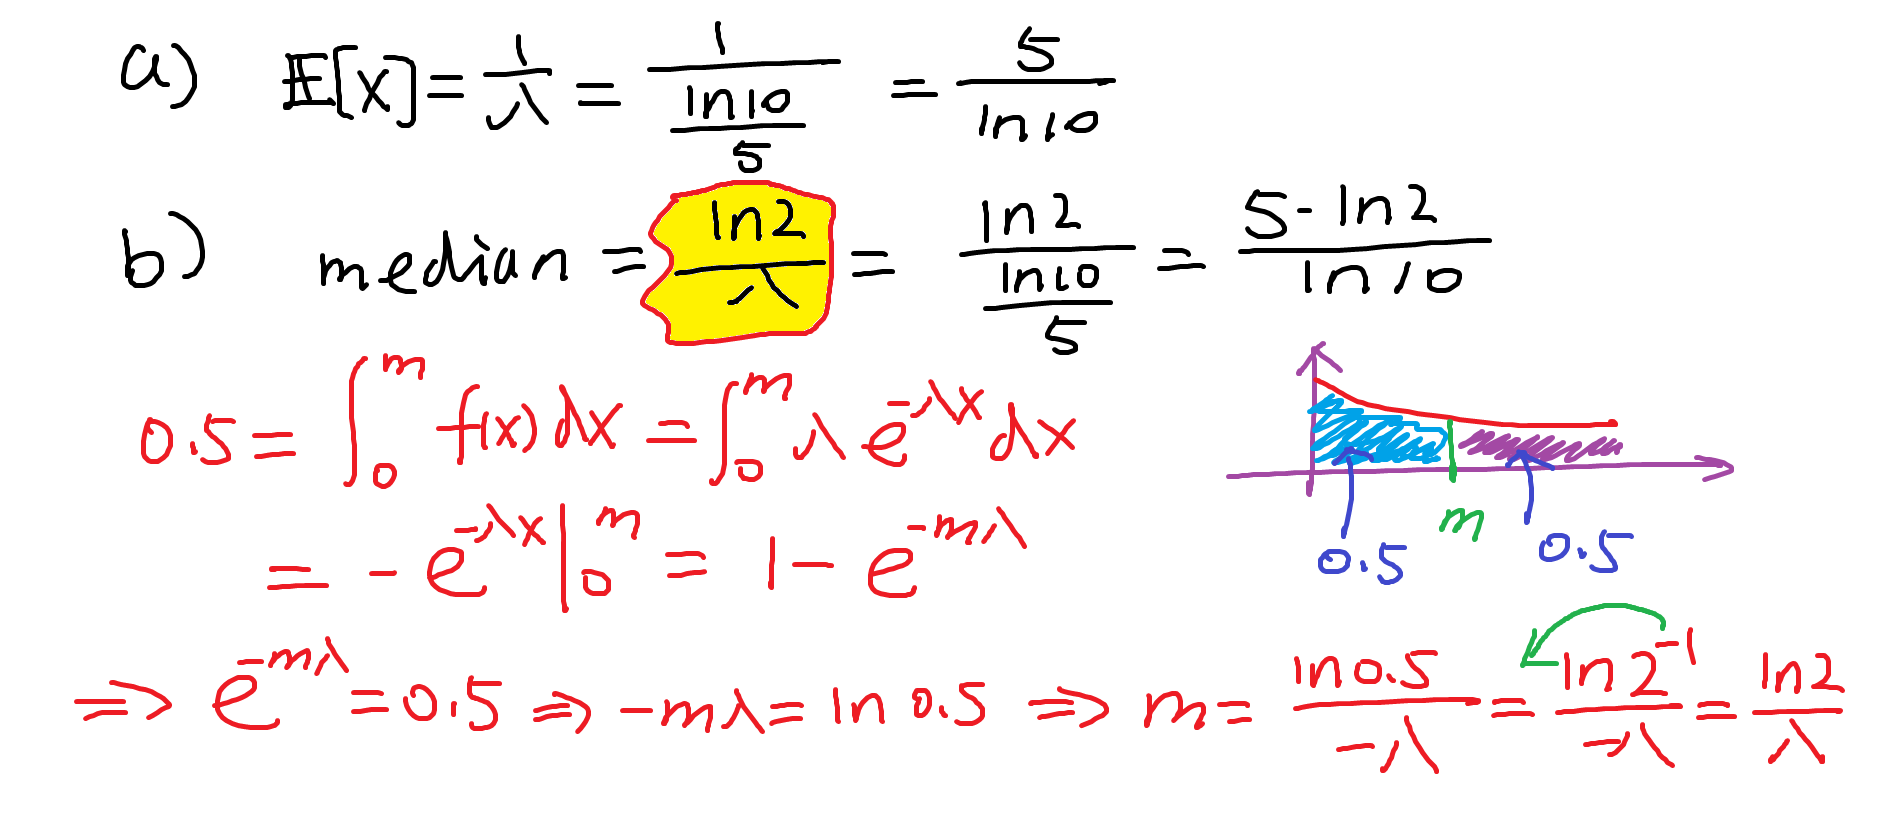 a) 𝔼[X] = 1/λ = 1/(ln10/5) = 5/ln10
b) median = ln2/λ = ln2/(ln10/5) = 5·ln2/ln10
0.5 = ∫₀ᵐ f(x) dx = ∫₀ᵐ λ e^(-λx) dx
= -e^(-λx) |₀ᵐ = 1 - e^(-mλ)
m
0.5 0.5
⇒ e^(-mλ) = 0.5 ⇒ -mλ = ln 0.5 ⇒ m = ln0.5/-λ = ln2^(-1)/-λ = ln2/λ